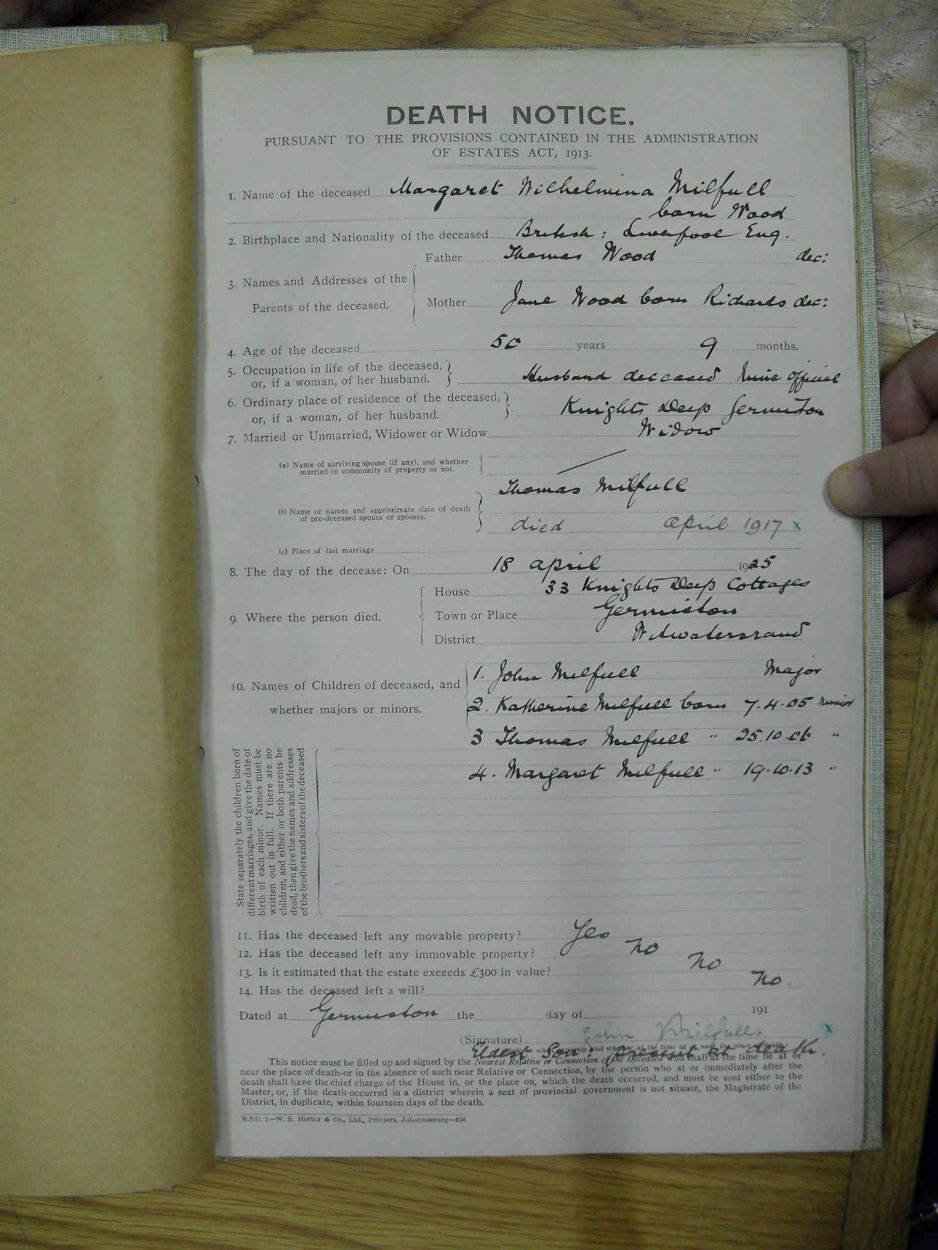 DEATH NOTICE.
PURSUANT TO THE PROVISIONS CONTAINED IN THE ADMINISTRATION
OF ESTATES ACT, 1913.
1. Name of the deceased Margaret Wilhelmina Milfull
born Wood
2. Birthplace and Nationality of the deceased British: Liverpool Eng.
3. Names and Addresses of the Parents of the deceased.
Father Thomas Wood dec:
Mother Jane Wood born Richards dec:
4. Age of the deceased 50 years 9 months.
5. Occupation in life of the deceased,
or, if a woman, of her husband. Husband deceased Mine Official
6. Ordinary place of residence of the deceased,
or, if a woman, of her husband. Knights Deep Germiston
7. Married or Unmarried, Widower or Widow Widow
(a) Name of surviving spouse (if any), and whether
married in community of property or not.
Thomas Milfull
(b) Name or names and approximate date of death
of pre-deceased spouse or spouses.
died April 1917 x
(c) Place of last marriage
8. The day of the decease: On 18 April 1925
9. Where the person died.
House 33 Knights Deep Cottages
Town or Place Germiston
District Witwatersrand
10. Names of Children of deceased, and
whether majors or minors.
1. John Milfull Major
2. Katherine Milfull born 7.4.05 minor
3 Thomas Milfull " 25.10. "
4. Margaret Milfull " 19.10.13 "
State separately the children born of
different marriages, and give the date of
birth of each minor. Names must be
written out in full. If there are no
children, and either or both parents be
dead, then give the names and addresses
of the brothers and sisters of the deceased
11. Has the deceased left any movable property? Yes
12. Has the deceased left any immovable property? No
13. Is it estimated that the estate exceeds £300 in value? No
14. Has the deceased left a will? No.
Dated at Germiston the day of 191
(Signature) John Milfull x
Eldest Son: present at death.
This notice must be filled up and signed by the Nearest Relative or Connection of the Deceased who shall at the time be at or
near the place of death-or in the absence of such near Relative or Connection, by the person who at or immediately after the
death shall have the chief charge of the House in, or the place on, which the death occurred, and must be sent either to the
Master, or, if the death occurred in a district wherein a seat of provincial government is not situate, the Magistrate of the
District, in duplicate, within fourteen days of the death.
M.S.C. 1—W. E. Hortor & Co., Ltd., Printers, Johannesburg—